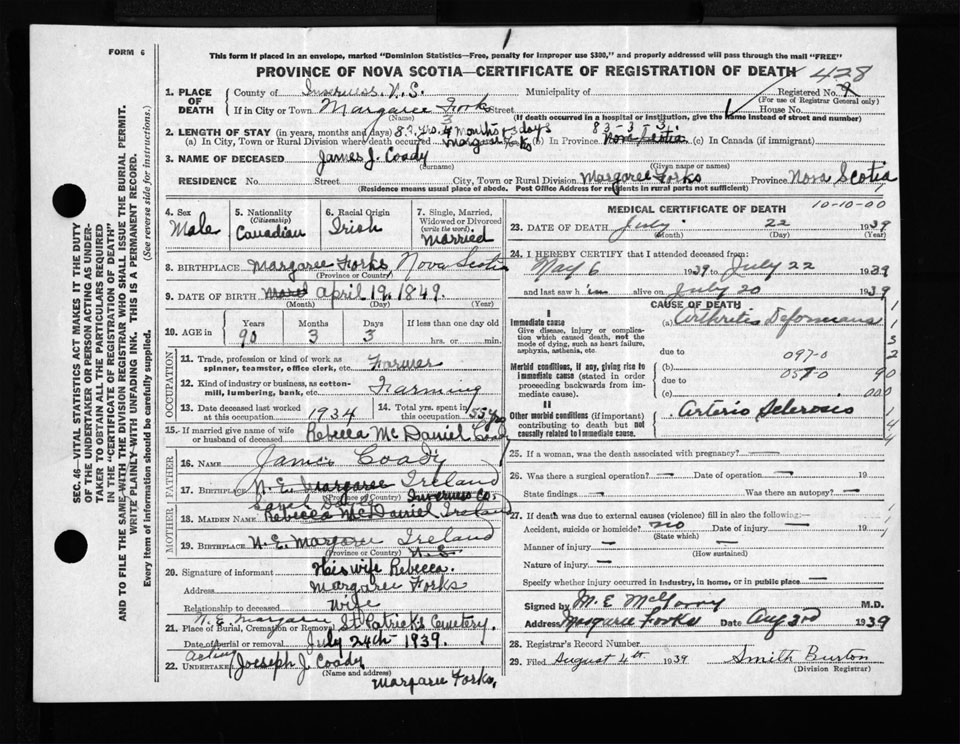 FORM 6
1
This form if placed in an envelope, marked "Dominion Statistics—Free, penalty for improper use $300," and properly addressed will pass through the mail "FREE"
PROVINCE OF NOVA SCOTIA—CERTIFICATE OF REGISTRATION OF DEATH
428
SEC. 46—VITAL STATISTICS ACT MAKES IT THE DUTY
OF THE UNDERTAKER OR PERSON ACTING AS UNDER-
TAKER TO OBTAIN ALL THE PARTICULARS REQUIRED
IN THE "CERTIFICATE OF REGISTRATION OF DEATH"
AND TO FILE THE SAME WITH THE DIVISION REGISTRAR WHO SHALL ISSUE THE BURIAL PERMIT.
WRITE PLAINLY WITH UNFADING INK. THIS IS A PERMANENT RECORD.
Every item of information should be carefully supplied. (See reverse side for instructions.)
1. PLACE OF DEATH
County of Inverness N.S. Municipality of Registered No. 9
(For use of Registrar General only)
If in City or Town Margaree Forks Street House No.
(Name) (If death occurred in a hospital or institution, give the name instead of street and number)
3
2. LENGTH OF STAY (in years, months and days) yrs. months 3 days
(a) In City, Town or Rural Division where death occurred Margaree Forks (b) In Province Nova Scotia (c) In Canada (if immigrant)
3. NAME OF DECEASED James J. Coady
(Surname) (Given name or names)
RESIDENCE No. Street City, Town or Rural Division Margaree Forks Province Nova Scotia
(Residence means usual place of abode. Post Office Address for residents in rural parts not sufficient)
4. Sex Male
5. Nationality (Citizenship) Canadian
6. Racial Origin Irish
7. Single, Married, Widowed or Divorced (write the word) Married
8. BIRTHPLACE Margaree Forks, Nova Scotia
(Province or Country)
9. DATE OF BIRTH April 19, 1849.
(Month) (Day) (Year)
10. AGE in Years 90 Months 3 Days 3 If less than one day old hrs. or min.
OCCUPATION
11. Trade, profession or kind of work as spinner, teamster, office clerk, etc. Farmer
12. Kind of industry or business, as cotton-mill, lumbering, bank, etc. Farming
13. Date deceased last worked at this occupation 1934
14. Total yrs. spent in this occupation 55 yrs
15. If married give name of wife or husband of deceased Rebecca McDaniel Coady
FATHER
16. NAME James Coady
17. BIRTHPLACE N. E. Margaree Ireland
(Province or Country) Inverness Co.
MOTHER
18. MAIDEN NAME Rebecca McDaniel Ireland
19. BIRTHPLACE N. E. Margaree Ireland
(Province or Country)
20. Signature of informant His wife Rebecca.
Address Margaree Forks
Relationship to deceased Wife
21. Place of Burial, Cremation or Removal N. E. Margaree St Patricks Cemetery.
Date of burial or removal July 24th 1939.
22. Acting UNDERTAKER Joeseph J. Coady
(Name and address)
Margaree Forks,
MEDICAL CERTIFICATE OF DEATH
10-10-00
23. DATE OF DEATH July 22 1939
(Month) (Day) (Year)
24. I HEREBY CERTIFY that I attended deceased from:
May 6 1939 to July 22 1939
and last saw h im alive on July 20 1939
CAUSE OF DEATH
I
Immediate cause
Give disease, injury or complication which caused death, not the mode of dying, such as heart failure, asphyxia, asthenia, etc.
(a) Arthritis Deformans
due to 097-0
Morbid conditions, if any, giving rise to immediate cause (stated in order proceeding backwards from immediate cause).
(b)
due to 057-0
(c)
II
Other morbid conditions (if important) contributing to death but not causally related to immediate cause.
Arterio Sclerosis
25. If a woman, was the death associated with pregnancy? —
26. Was there a surgical operation? — Date of operation —
State findings — Was there an autopsy? —
27. If death was due to external causes (violence) fill in also the following:—
Accident, suicide or homicide? no Date of injury — 19
(State which)
Manner of injury —
(How sustained)
Nature of injury —
Specify whether injury occurred in industry, in home, or in public place —
Signed by M.D.
Address Margaree Forks Date Aug 3rd 1939
28. Registrar's Record Number
29. Filed August 4th 1939 Smith Burton
(Division Registrar)